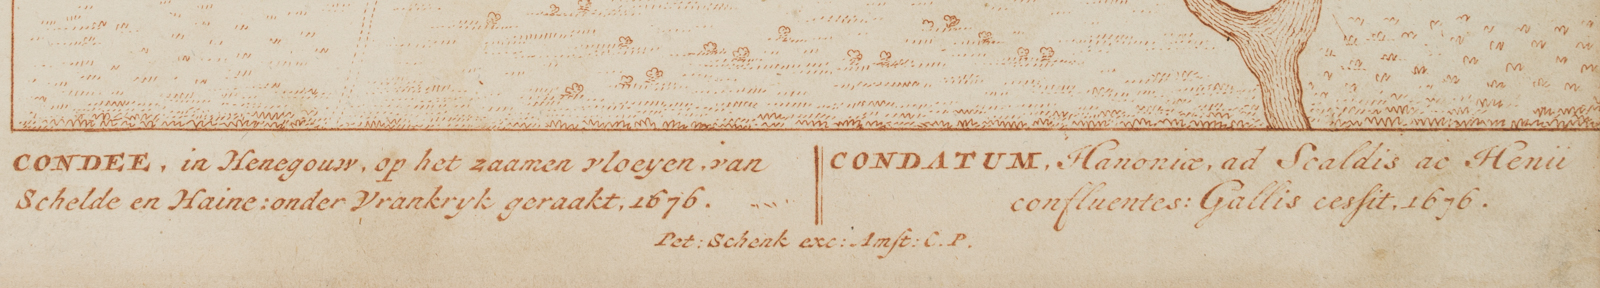 CONDEE, in Henegouw, op het zaamen vloeyen, van
Schelde en Haine: onder Vrankryk geraakt, 1676.
CONDATUM, Hanoniæ, ad Scaldis ac Henii
confluentes: Gallis cessit, 1676.
Pet: Schenk exc: Amst: C.P.